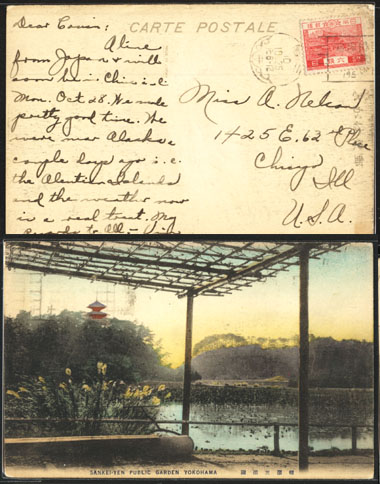 CARTE POSTALE
Dear Cousin:
Alive
from Japan & will
soon be in Chi. i.e.
Mon. Oct 28. We made
pretty good time. We
were near Alaska a
couple days ago i.e.
the Aleutian Islands
and the weather now
is a real treat. My
regards to all –
Miss A. Nelson
1425 E. 62nd Place
Chicago
Ill
U.S.A.
SANKEI-YEN PUBLIC GARDEN YOKOHAMA